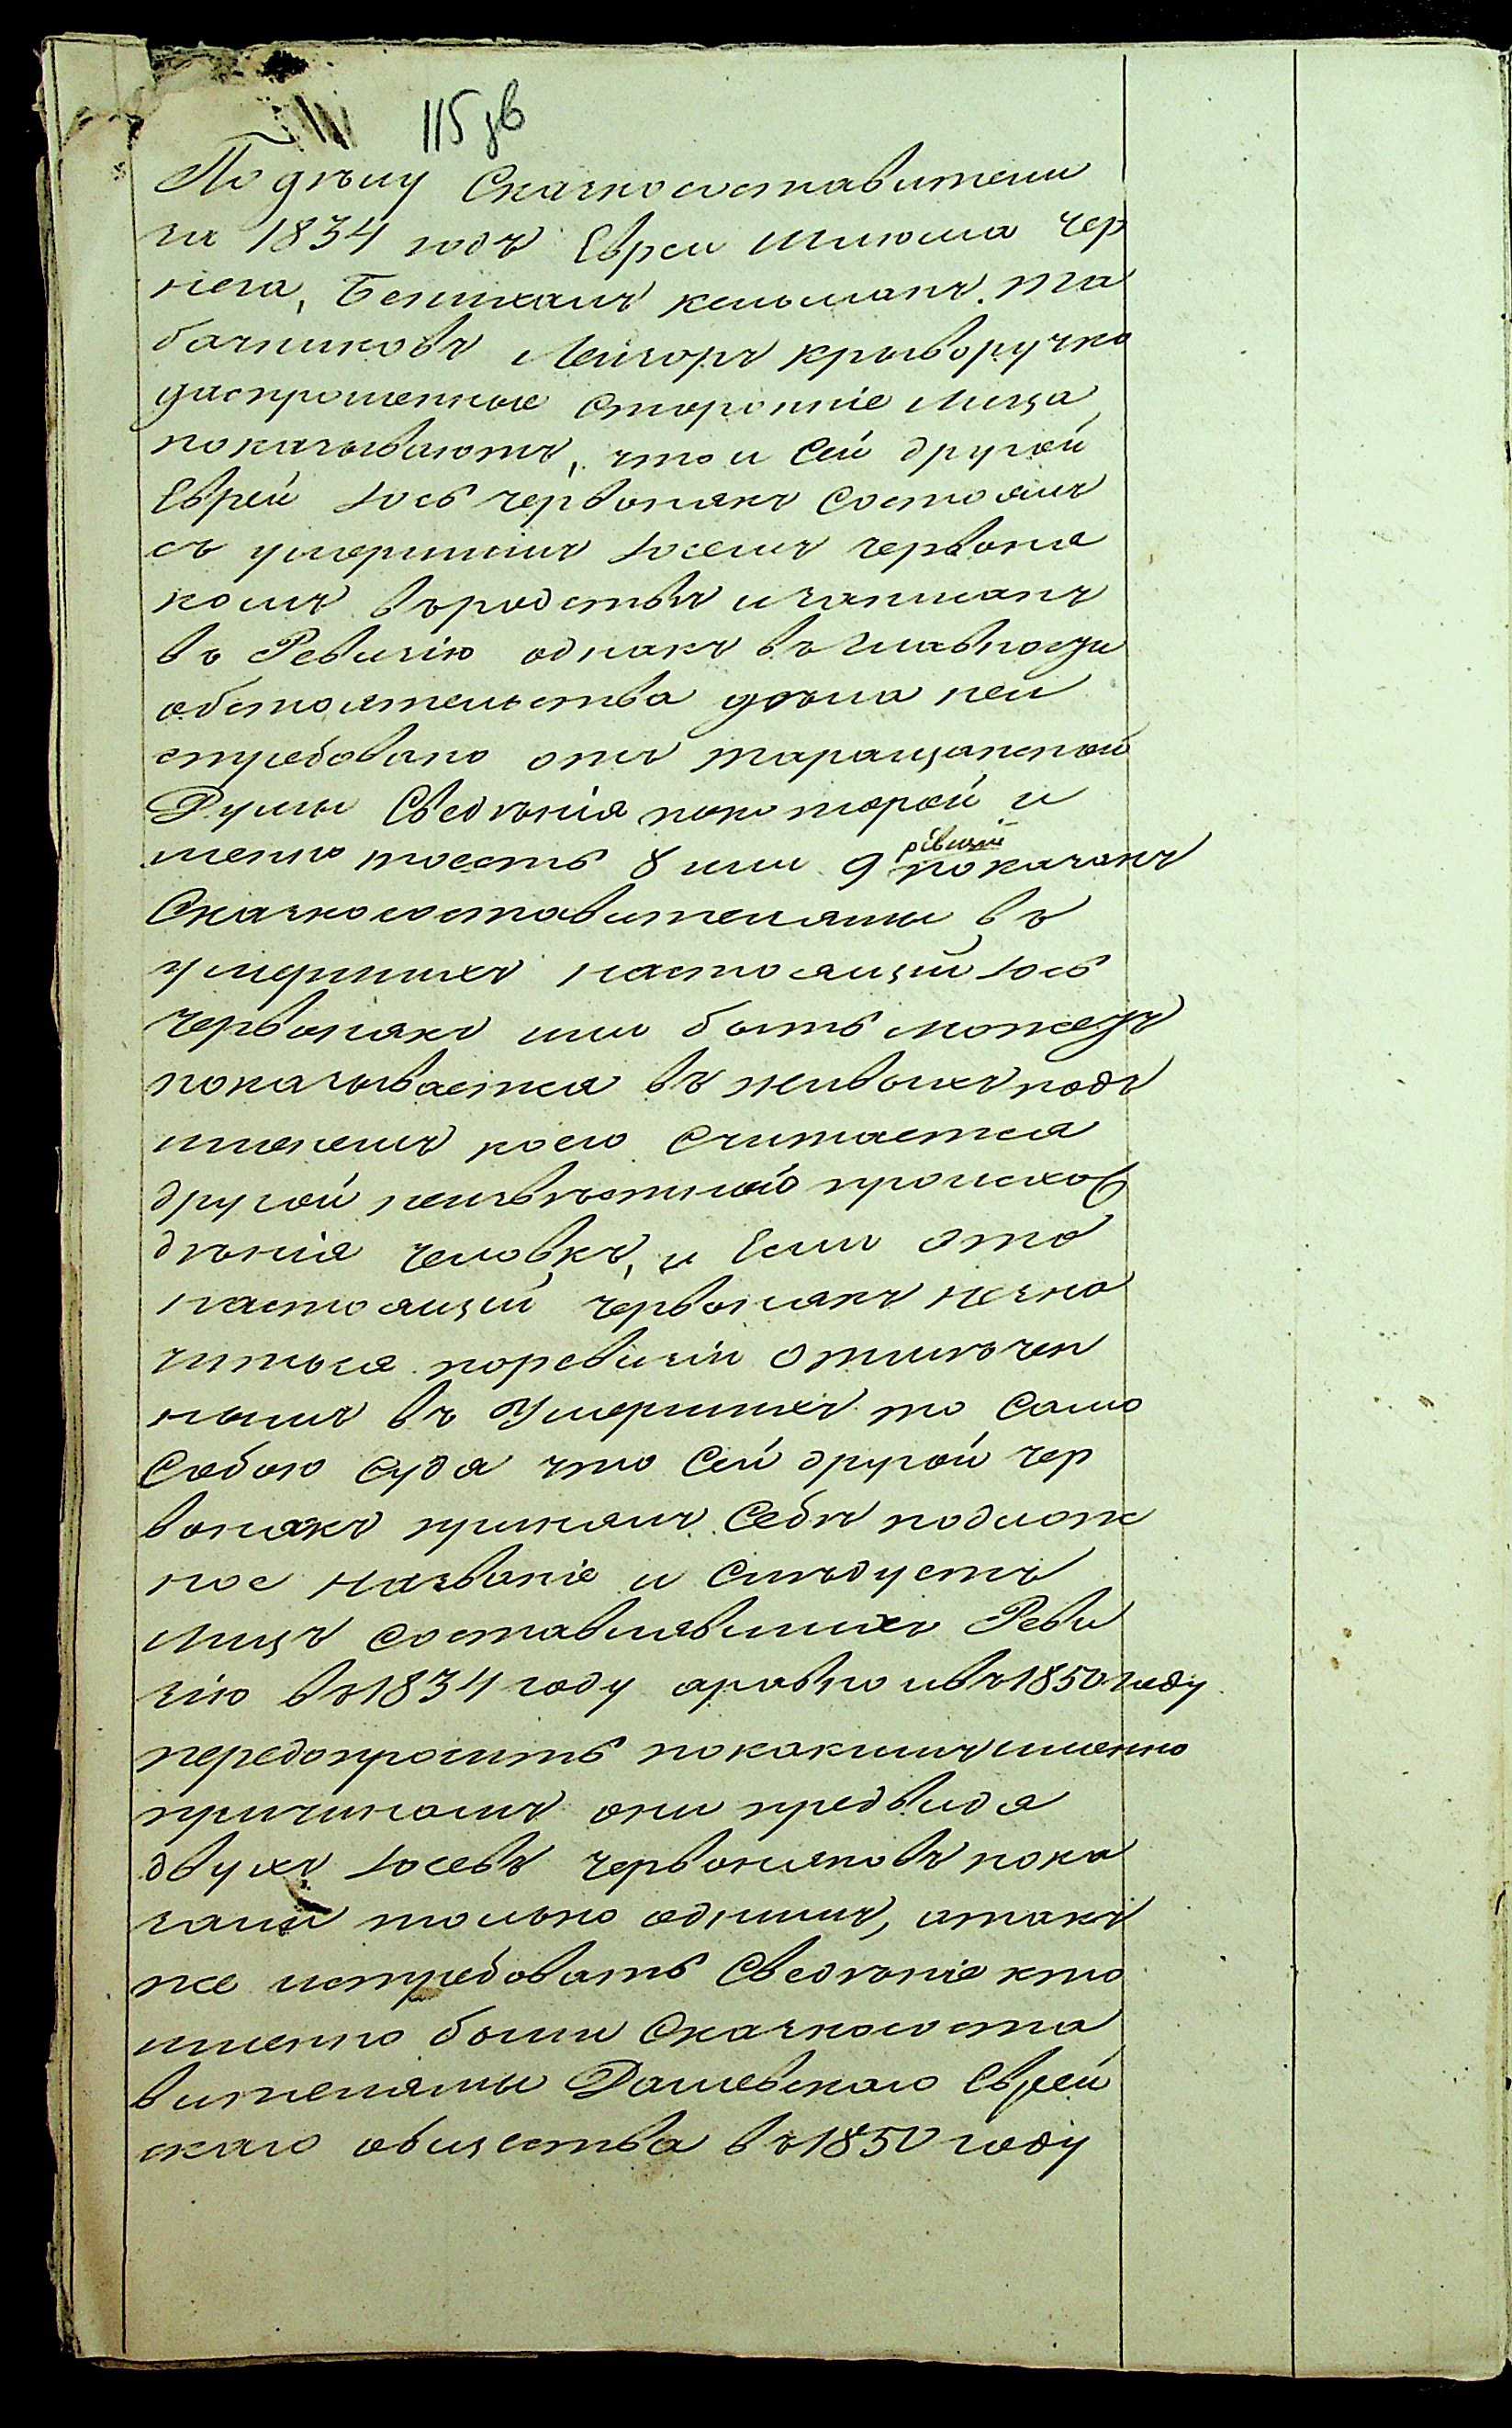 115 зв
По делу Сказкосоставители
за 1834 годъ Евреи Шлиома Чер
нега, Бениханъ Кельманъ Та
бачниковъ Лейзоръ Криворучко
даспрошенные сторонніе лица
показываютъ, что и сей другой
Еврей Іось Червонякъ состоялъ
съ умершимъ Іосемъ Червоня
комъ въ родствѣ и записанъ
въ Ревизію однакъ въ главности
обстоятельства дѣла неи
стребовано отъ Таращанской
Думы Сведѣнія по которой и
менно тоесть 8 или 9 ревизіи показанъ
Сказкосоставителями въ
умершихъ настоящій Іось
Червонякъ или быть можетъ
показывается въ живыхъ подъ
именемъ коего считается
другой неизвѣстный происхо
дѣнія человѣкъ, и если это
настоящій Червонякъ незна
читься поревизіи отмѣчен
нымъ въ Умершихъ то само
собою судя что сей другой Чер
вонякъ принялъ себѣ подлож
ное названіе и слѣдуетъ
лицъ составлявшихъ Реви
зію въ 1834 году аравно ивъ 1850 году
передопросить по какимъ именно
причиномъ они предвидя
двухъ Іосевъ Червоняковъ пока
зали только однимъ, атакъ
же истребовать Сведѣніе кто
именно были Сказкососта
вителями Дашевскаго Еврей
скаго общества въ 1850 году